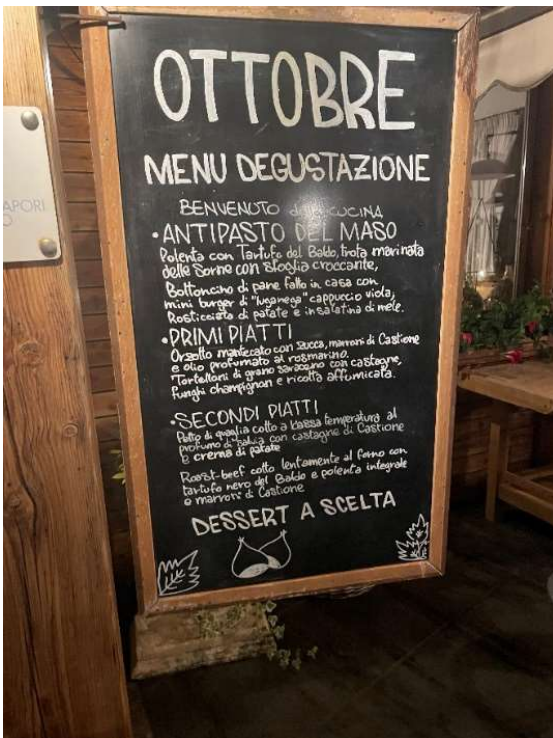 OTTOBRE
MENU DEGUSTAZIONE
BENVENUTO CUCINA
•ANTIPASTO DEL MASO
Polenta con Tartufo del Baldo, trota marinata
delle Sorne con sfoglia croccante,
Bottoncino di pane fatto in casa con
mini burger di "luganega" cappuccio viola,
Rosticciata di patate e insalatina di mele.
•PRIMI PIATTI
Orzotto mantecato con zucca, marroni di Castione
e olio profumato al rosmarino.
Tortelloni di grano saraceno con castagne,
funghi champignon e ricotta affumicata.
•SECONDI PIATTI
Petto di quaglia cotto a bassa temperatura al
profumo di salvia con castagne di Castione
e crema di patate
Roast-beef cotto lentamente al forno con
tartufo nero del Baldo e polenta integrale
e marroni di Castione
DESSERT A SCELTA
APORI
O